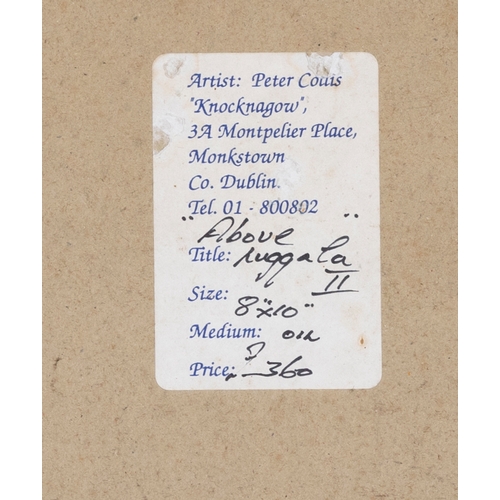 Artist: Peter Couis
"Knocknagow",
3A Montpelier Place,
Monkstown
Co. Dublin.
Tel. 01 - 800802
"Above
Title: Luggala"
II
Size: 8"x10"
Medium: oil
Price: 360